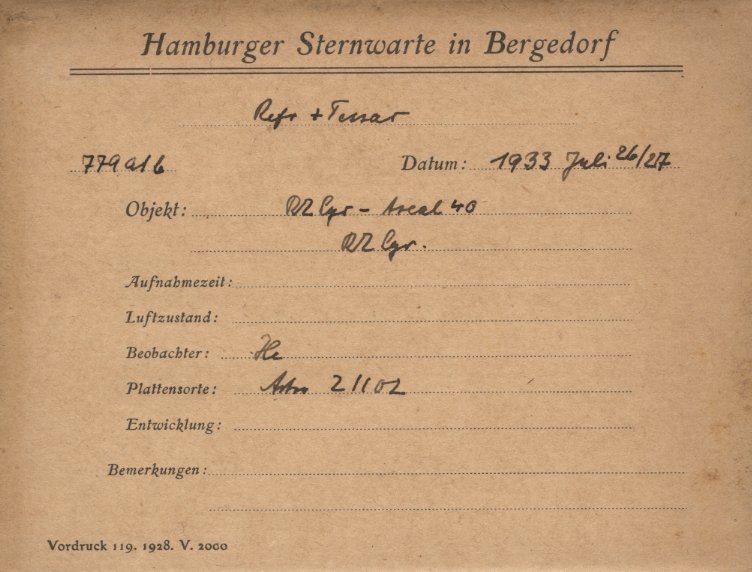 Hamburger Sternwarte in Bergedorf
Refr + Tessar
779 a/b Datum: 1933 Juli 26/27
Objekt: RZ Cyr - Areal 40
RZ Cyr.
Aufnahmezeit:
Luftzustand:
Beobachter: He
Plattensorte: Astro 21102
Entwicklung:
Bemerkungen:
Vordruck 119. 1928. V. 2000